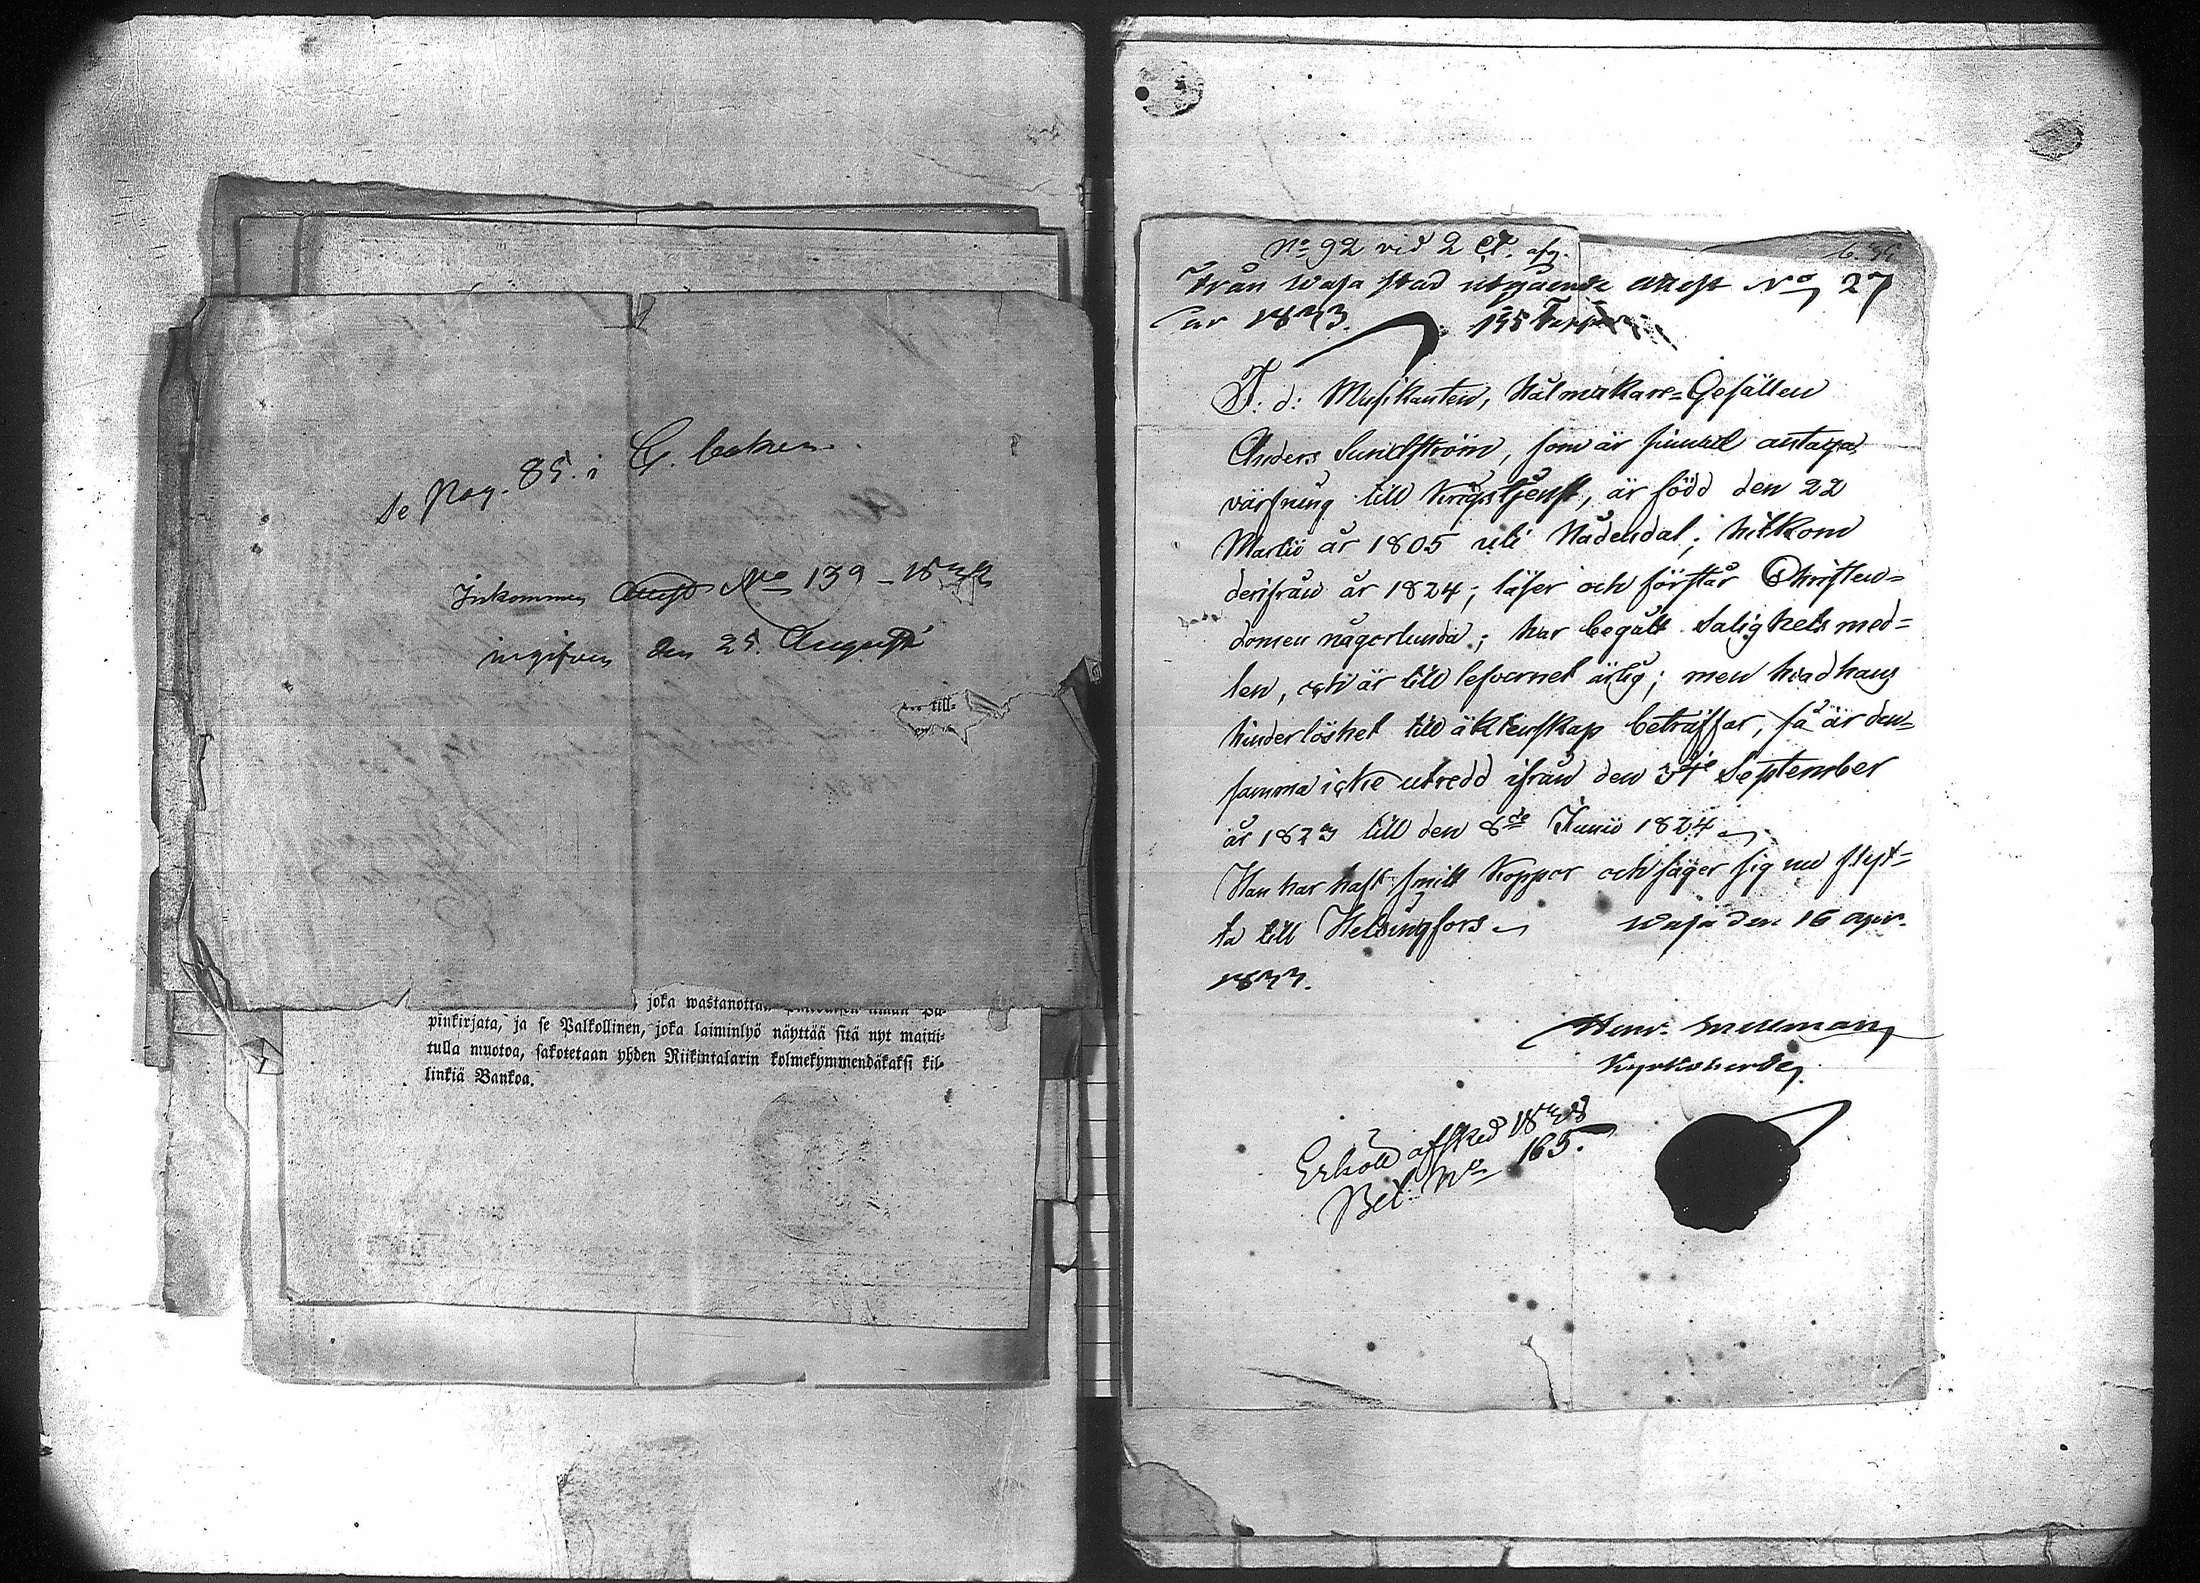 Se Pag. 85. i G. boken.
Inkommen Attest No 139 - 1832
ingifven den 25. Augusti
till-
joka wastanottaa
pinkirjata, ja se Palkollinen, joka laiminlyö näyttää sitä nyt maini-
tulla muotoa, sakotetaan yhden Riikintalarin kolmekymmendäkaksi kil-
linkiä Bankoa.
No 92 vid 2 Ct. afg.
Från Wasa stad utgående attest No 27
år 1833.
F. d: Musikanten, Hatmakare-Gesällen
Anders Sundström, som är sinnad antaga
värfning till Krigstjenst, är född den 22
Martii år 1805 uti Nådendal; hitkom
derifrån år 1824; läser och förstår Christen-
domen någorlunda; har begått Salighets med-
len, och är till lefvernet ärlig; men hvad hans
hinderlöshet till äktenskap beträffar, så är den-
samma icke utredd ifrån den 3dje September
år 1823 till den 8de Junii 1824.
Han har haft smitt Koppor och säger sig nu flyt-
ta till Helsingfors. Wasa den 16 apr.
1833.
Kyrkoherde.
Erhöll afsked 1838
Bet. No 165.